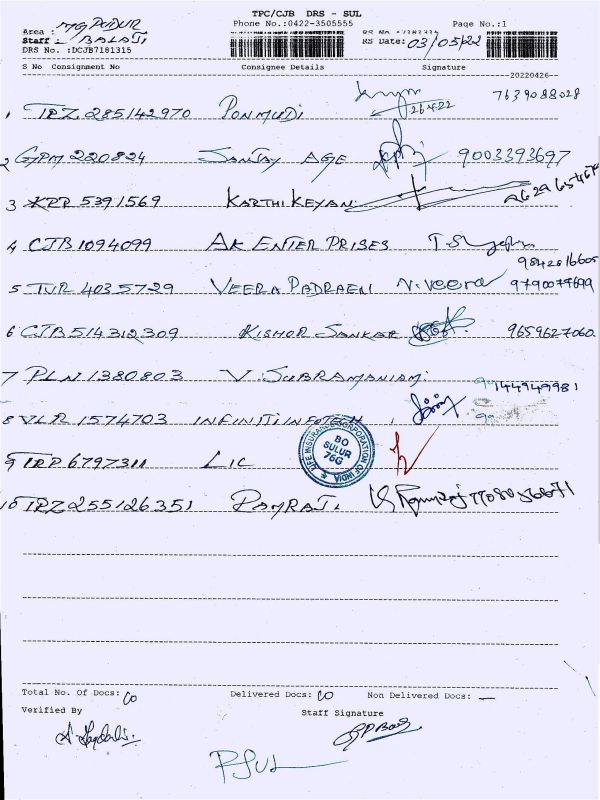 TPC/CJB DRS - SUL
Phone No.:0422-3505555 Page No.:1
Area : MG PUDUR
Staff : BALAJI RS Date: 03/05/22
DRS No. :DCJB7181315
S No Consignment No Consignee Details Signature
20220426
1 TRZ 285142970 PONMUDI 26.4.22 7639088028
2 GPM 220824 SANJAY AGE 9003393697
3 KRR 5391569 KARTHIKEYAN
4 CJB 1094099 AK ENTERPRISES 9842816605
5 TUR 4035729 VEERA PADRAEN V.Veera 9790079699
6 CJB 514312309 KISHOR SANKAR 9659627060
7 PLN 1380803 V. SUBRAMANIAM 9944949981
8 VLR 1574703 INFINITI INFOTECH
9 TRP 6797311 LIC
LIFE INSURANCE CORPORATION OF INDIA
BO
SULUR
76G
10 TRZ 255126351 RAMRAJ
Total No. Of Docs: 10 Delivered Docs: 10 Non Delivered Docs: —
Verified By Staff Signature